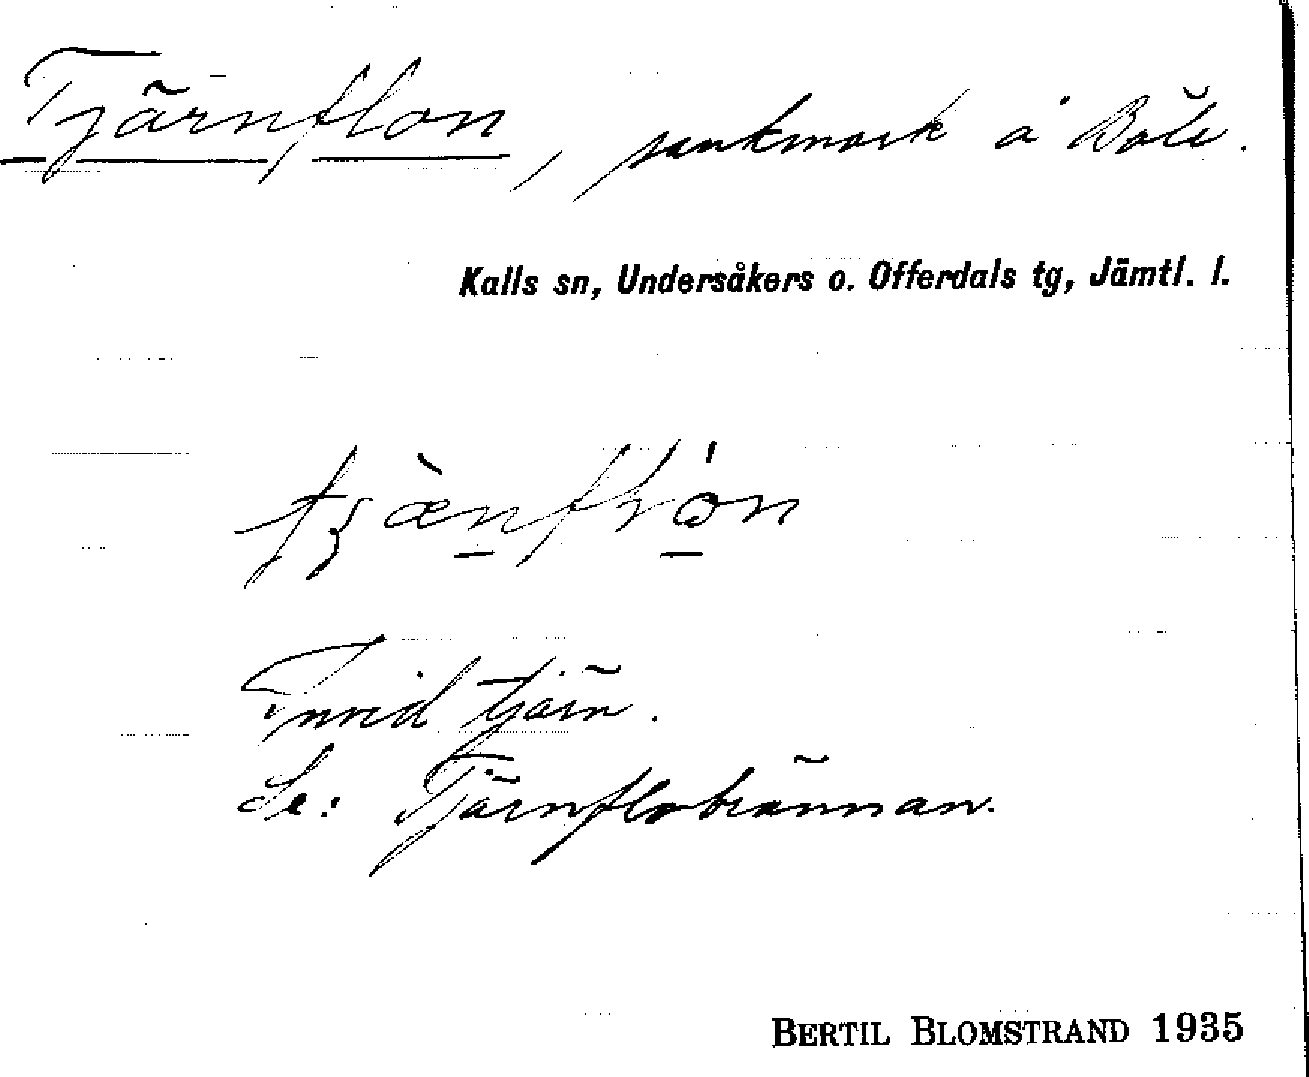 Tjärnflon, sankmark å Böle.
Kalls sn, Undersåkers o. Offerdals tg, Jämtl. l.
Invid tjärn.
Se: Tjärnflobrännan.
BERTIL BLOMSTRAND 1935